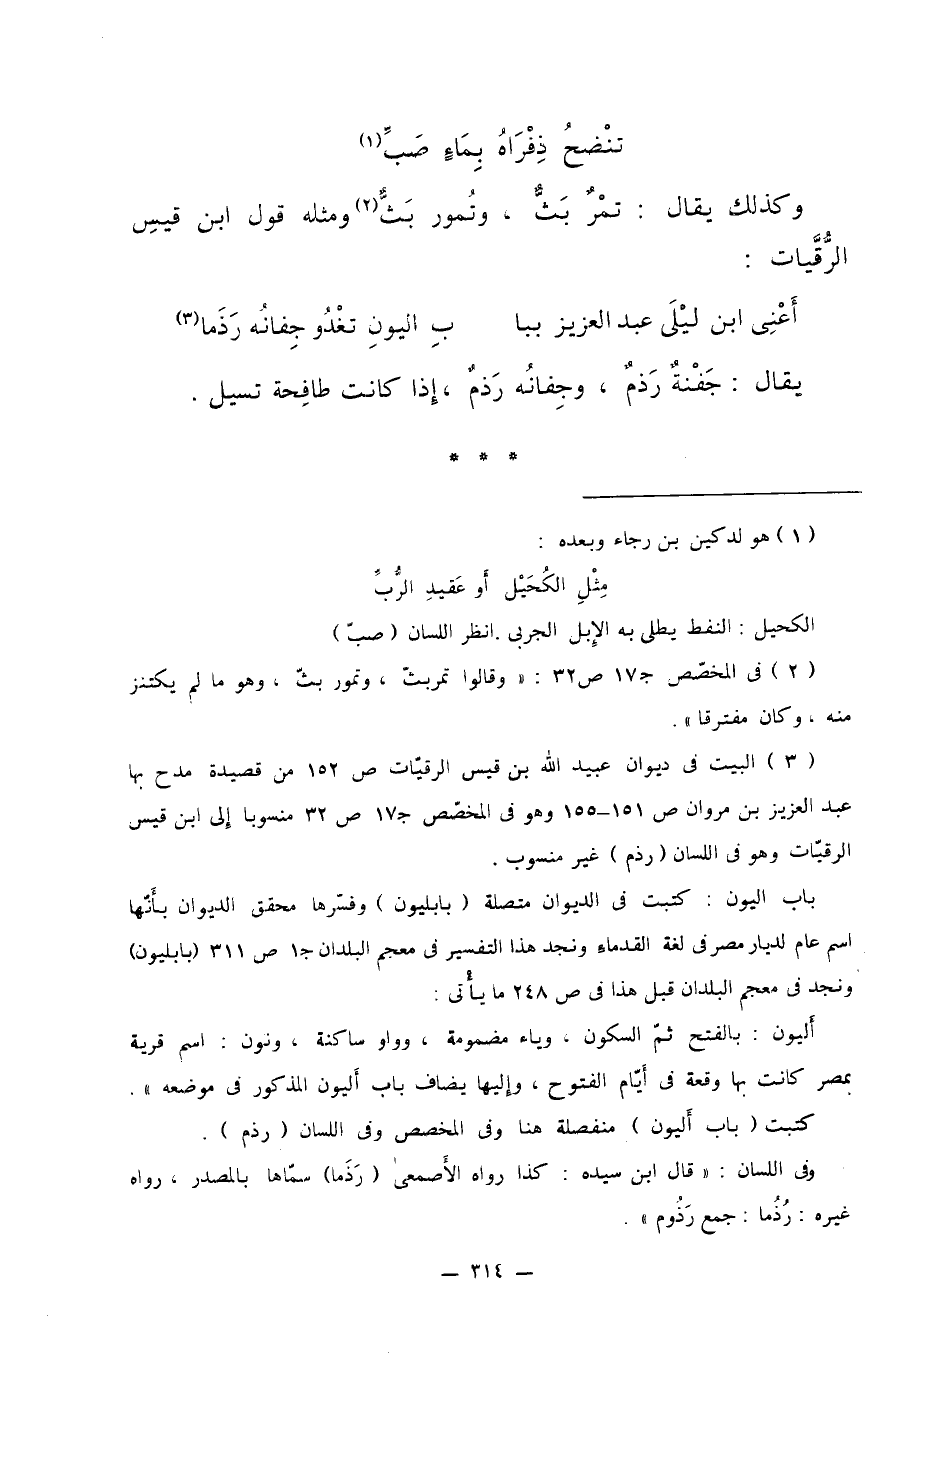 تنْضحُ ذِفْرَاهُ بِمَاءٍ صَبِّ(١)
وكذلك يقال : تمْرٌ بَثٌّ ، وتُمور بَثٌّ(٢) ومثله قول ابن قيسِ
الرُّقَيَّات :
أَعْنِى ابن ليْلَى عبد العزيز ببا بِ اليونِ تغْدُو جِفانُه رَذَما(٣)
يقال : جَفْنةٌ رَذمٌ ، وجِفانُه رَذمٌ ، إذا كانت طافِحة تسيل .
* * *
( ١ ) هو لدكين بن رجاء وبعده :
مِثْلِ الكُحَيْل أَو عَقيدِ الرُّبِّ
الكحيل : النفط يطلى به الإبل الجربى . انظر اللسان ( صبّ )
( ٢ ) فى المخصّص جـ١٧ ص٣٢ : « وقالوا تمربثّ ، وتمور بثّ ، وهو ما لم يكتنز
منه ، وكان مفترقا » .
( ٣ ) البيت فى ديوان عبيد الله بن قيس الرقيّات ص ١٥٢ من قصيدة مدح بها
عبد العزيز بن مروان ص ١٥١ــ١٥٥ وهو فى المخصّص جـ١٧ ص ٣٢ منسوبا إلى ابن قيس
الرقيّات وهو فى اللسان ( رذم ) غير منسوب .
باب اليون : كتبت فى الديوان متصلة ( بابليون ) وفسّرها محقق الديوان بأنّها
اسم عام لديار مصر فى لغة القدماء ونجد هذا التفسير فى معجم البلدان جـ١ ص ٣١١ (بابليون)
ونجد فى معجم البلدان قبل هذا فى ص ٢٤٨ ما يأْتى :
أَليون : بالفتح ثمّ السكون ، وياء مضمومة ، وواو ساكنة ، ونون : اسم قرية
بمصر كانت بها وقعة فى أيّام الفتوح ، وإليها يضاف باب أليون المذكور فى موضعه » .
كتبت ( باب أَليون ) منفصلة هنا وفى المخصص وفى اللسان ( رذم ) .
وفى اللسان : « قال ابن سيده : كذا رواه الأَصمعىٰ ( رَذَما) سمّاها بالمصدر ، رواه
غيره : رُذُما : جمع رَذُوم » .
— ٣١٤ —